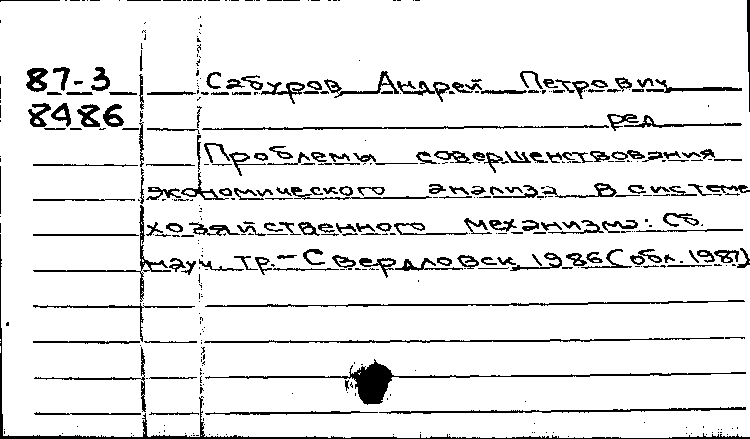 87-3 Сабуров, Андрей Петрович,
8486 ред.
Проблемы совершенствования
экономического анализа в системе
хозяйственного механизма: Сб.
науч. тр.-Свердловск, 1986(обл. 1987)